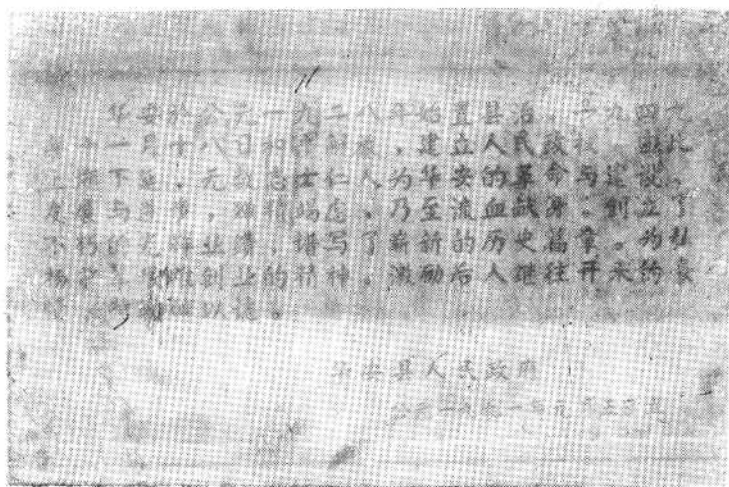 华安於公元一九二八年始置县治,一九四九
年十一月十八日和平解放,建立人民政权。
上下,无数志士仁人,为华安的革命与建设、
发展与进步,殚精竭虑,乃至流血献身。创立了
不朽的光辉业绩,谱写了崭新的历史篇章。为弘
扬艰难创业的精神,激励后人继往开来
碑以志。
华安县人民政府
公元一九九一年元月